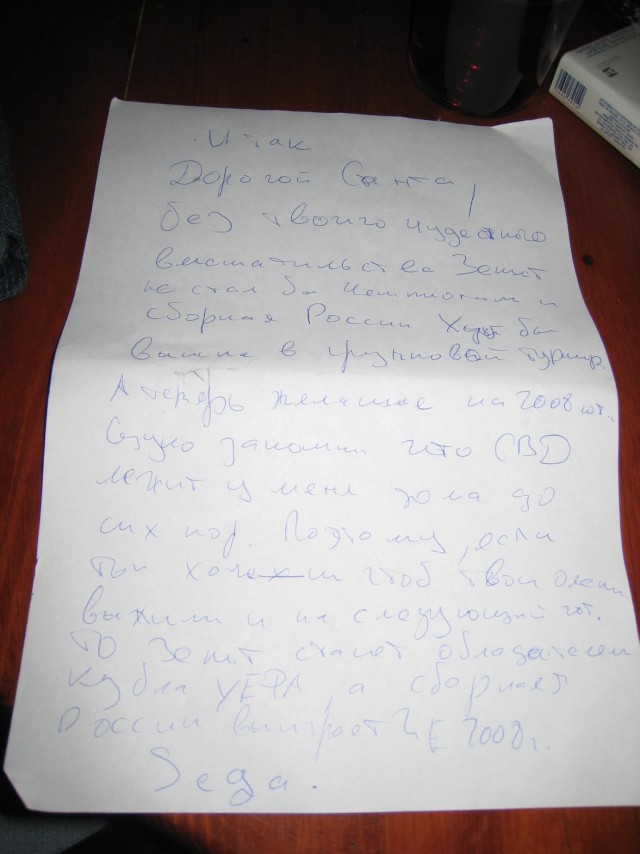 И так
Дорогой Санта,
без твоего чудестного
вмешательства Зенит
не стал бы чемпионам и
сборная России бы
вышла в групповой турнир.
А теперь желание на 2008 гот.
Сразу запомни что СВД
лежит у меня дома до
сих пор. Поэтому, если
ты хочеш чтоб твои олени
выжили и на следующий гот.
то Зенит станет обладателем
кубка УЕФА, а сборная
России выиграет ЧЕ 2008 г.
Sega.